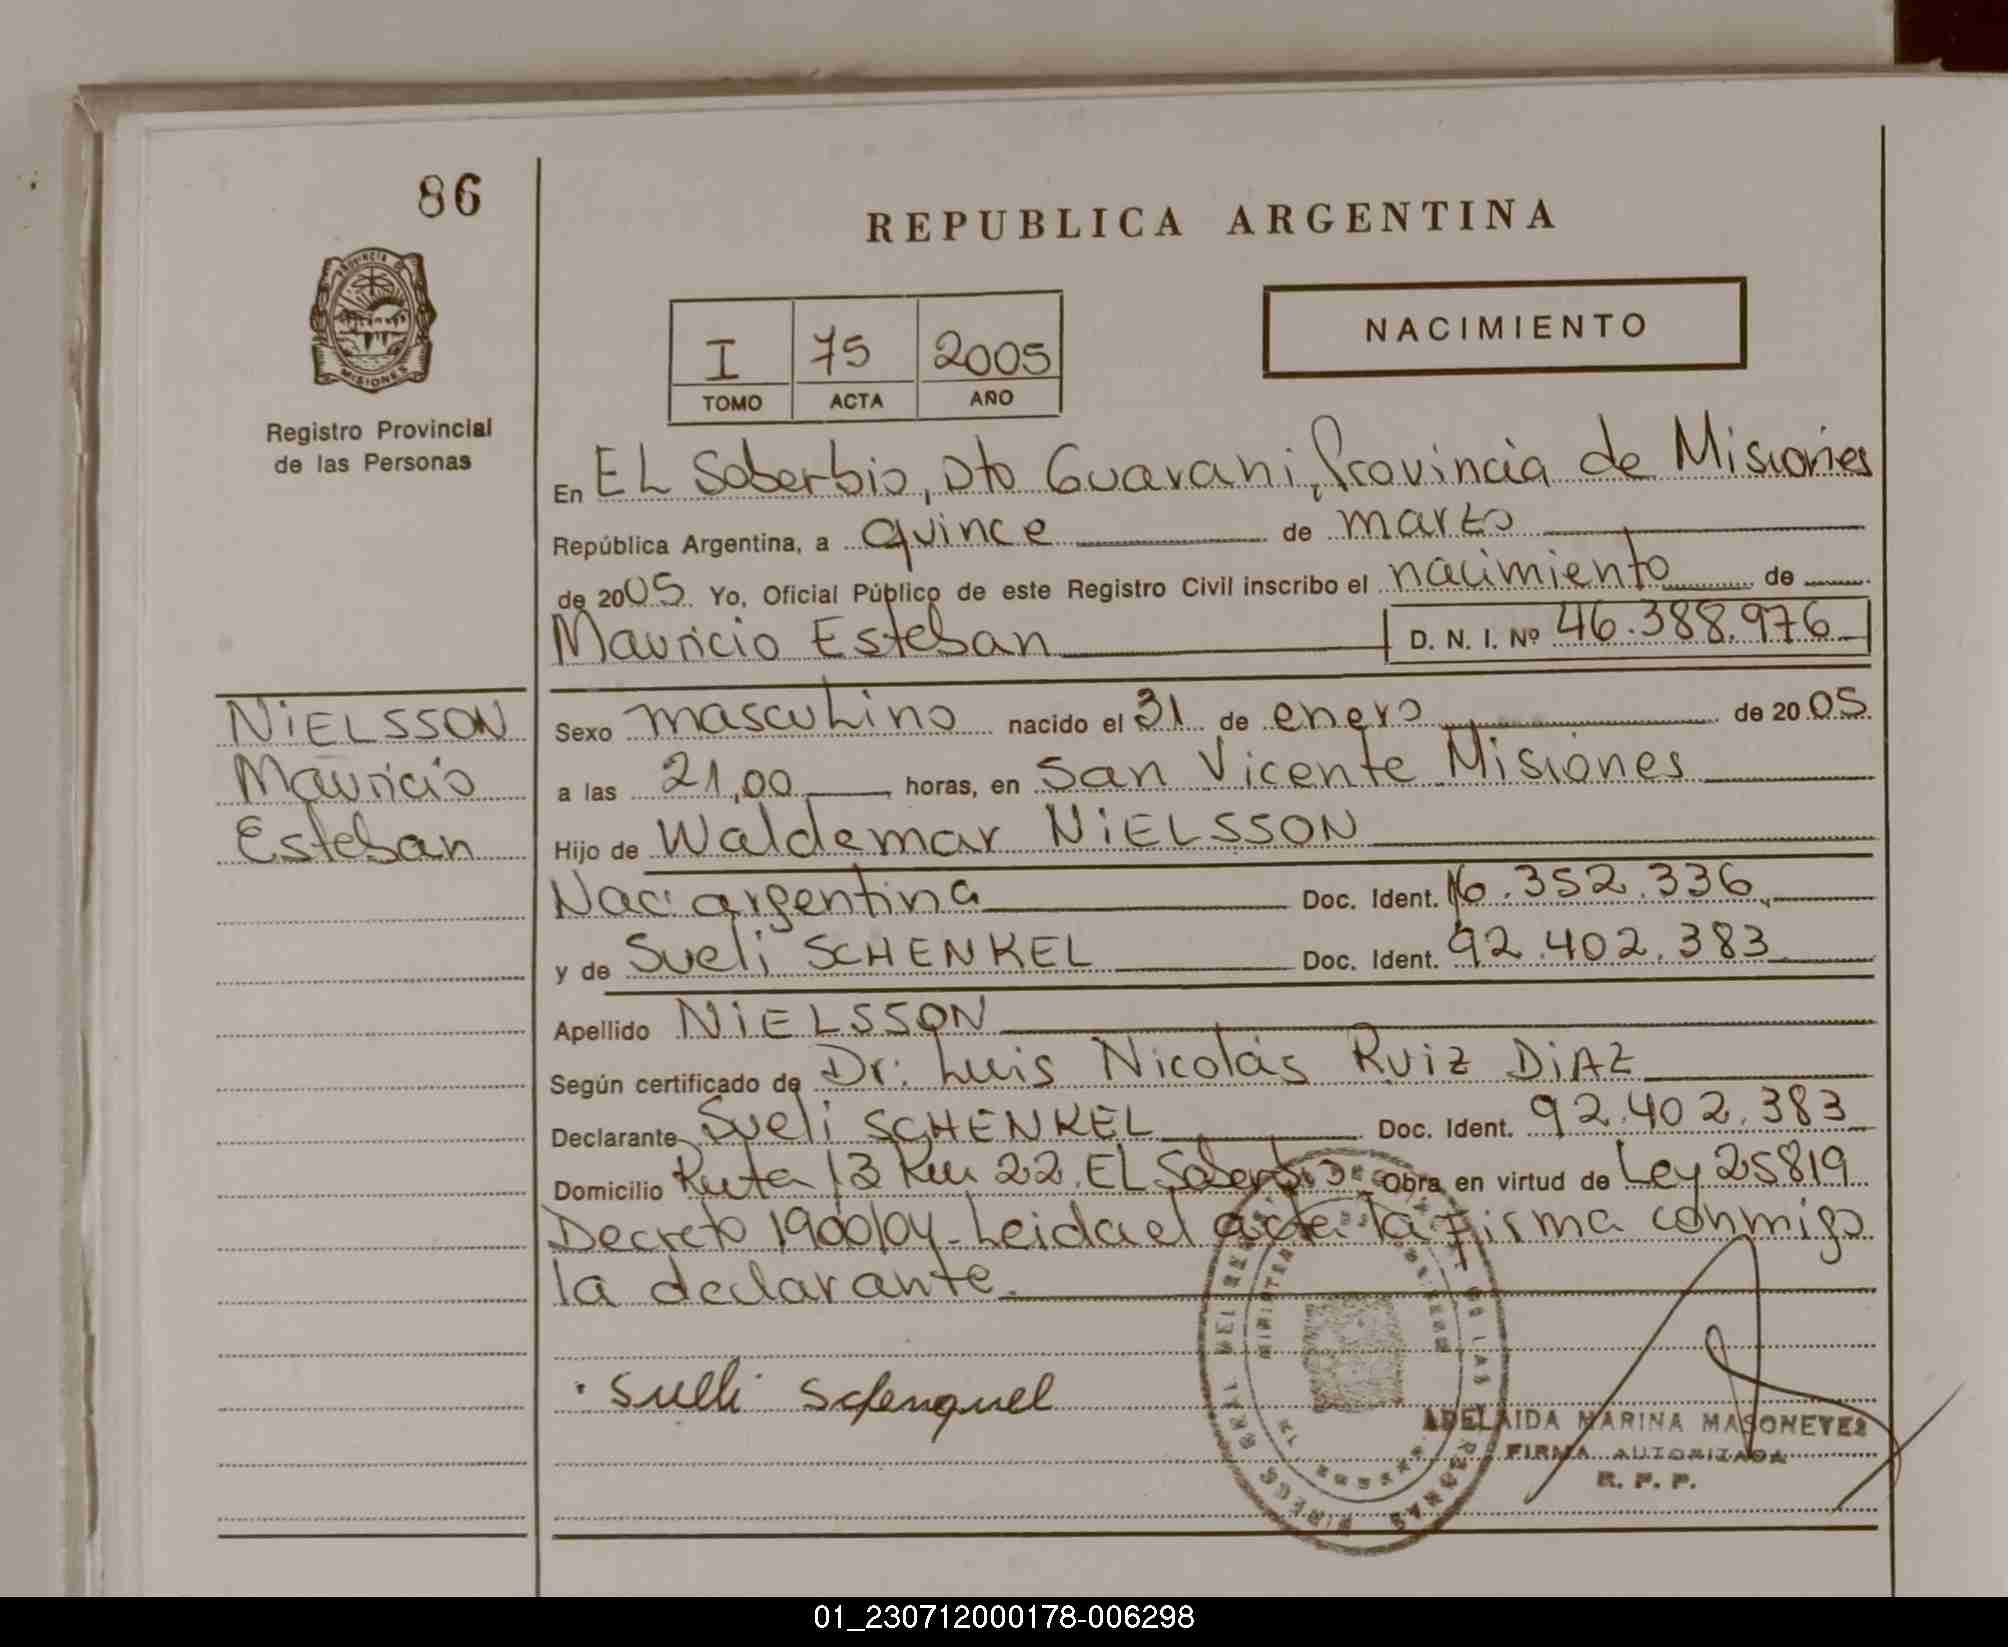 86
REPUBLICA ARGENTINA
PROVINCIA DE
MISIONES
Registro Provincial
de las Personas
I 75 2005
TOMO ACTA AÑO
NACIMIENTO
En EL Soberbio, Dto Guarani, Provincia de Misiones
República Argentina, a quince de marzo
de 2005 Yo, Oficial Público de este Registro Civil inscribo el nacimiento de
Mauricio Esteban D. N. I. Nº 46.388.976
NiELSSON
Mauricio
Esteban
Sexo masculino nacido el 31 de enero de 2005
a las 21,00 horas, en San Vicente Misiones
Hijo de Waldemar NiELSSON
Nac: argentina Doc. Ident. 16.352.336
y de Sueli SCHENKEL Doc. Ident. 92.402.383
Apellido NiELSSON
Según certificado de Dr: Luis Nicolás Ruiz DiAZ
Declarante Sueli SCHENKEL Doc. Ident. 92.402.383
Domicilio Ruta 13 Km 22. EL Soberbio Obra en virtud de Ley 25819
Decreto 1900/04. Leida el acta la firma conmigo
la declarante.
Suelli Schenquel
ADELAIDA MARINA MASONEVES
FIRMA AUTORIZADA
R. P. P.
01_230712000178-006298